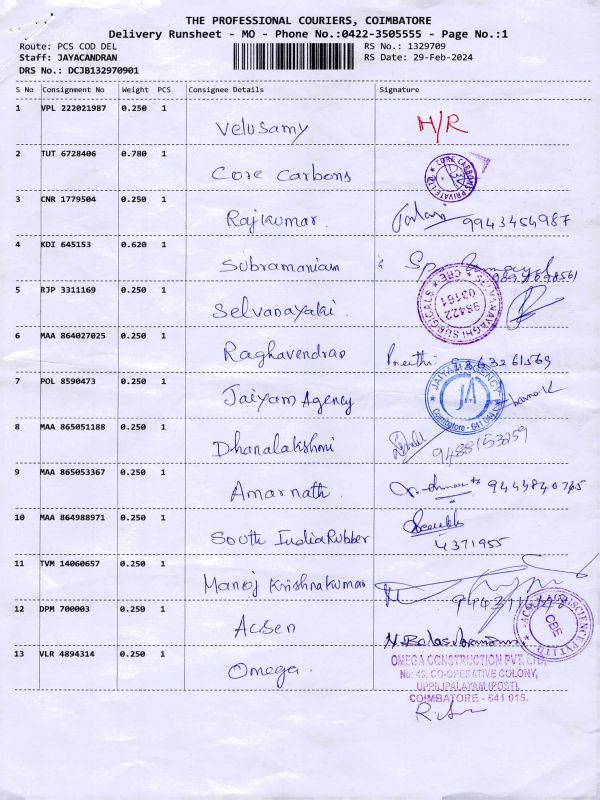 THE PROFESSIONAL COURIERS, COIMBATORE
Delivery Runsheet - MO - Phone No.:0422-3505555 - Page No.:1
Route: PCS COD DEL RS No.: 1329709
Staff: JAYACANDRAN RS Date: 29-Feb-2024
DRS No.: DCJB132970901
S No Consignment No Weight PCS Consignee Details Signature
1 VPL 222021987 0.250 1
Velusamy H/R
2 TUT 6728406 0.780 1
Core Carbons
CORE CARBONS PRIVATE LTD
3 CNR 1779504 0.250 1
Rajkumar. 9943454987
4 KDI 645153 0.620 1
Subramaniam
5 RJP 3311169 0.250 1
Selvanayaki.
98422
03161
CBE
6 MAA 864027025 0.250 1
Raghavendrao Preethi
7 POL 8590473 0.250 1
Jaiyam Agency
JAIYAM AGENCY
JA
Coimbatore - 641 044
8 MAA 865051188 0.250 1
Dhanalakshmi
9488153259
9 MAA 865053367 0.250 1
Amarnath. 9444840765
10 MAA 864988971 0.250 1
South India Rubber
4371955
11 TVM 14060657 0.250 1
Manoj Krishnakumar
12 DPM 700003 0.250 1
Acsen
CBE
13 VLR 4894314 0.250 1
Omega.
OMEGA CONSTRUCTION PVT. LTD,
No: 46, CO-OPERATIVE COLONY,
UPPILIPALAYAM (POST),
COIMBATORE - 641 015.